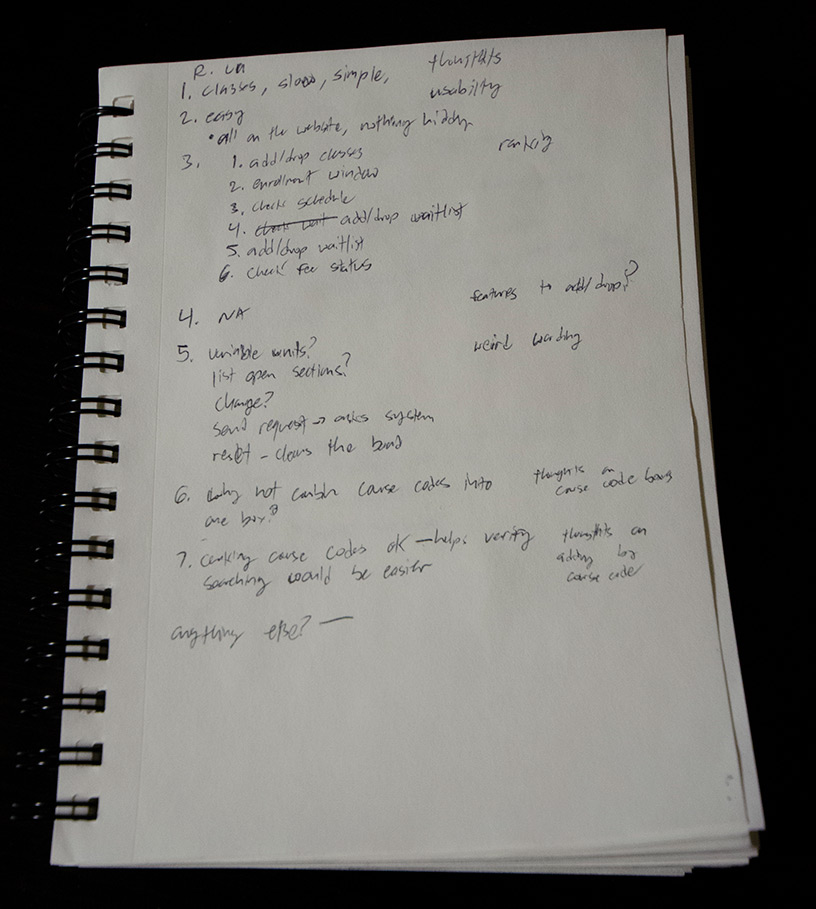 R. Lin
1. classes, slow, simple, thoughts
usability
2. easy
• all on the website, nothing hidden
3. 1. add/drop classes ranking
2. enrollment window
3. check schedule
4. check wait add/drop waitlist
5. add/drop waitlist
6. check fee status
features to add/drop?
4. NA
5. variable units? weird wording
list open sections?
change?
send request → asks system
reset - clears the board
6. Why not combine course codes into thoughts on
one box? course code boxes
7. course codes ok — helps verify thoughts on
searching would be easier adding by
course code
anything else? —